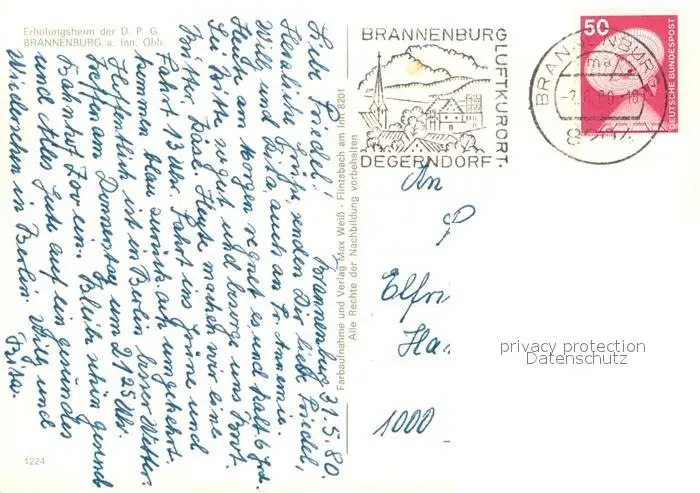 Erholungsheim der D. P. G.
BRANNENBURG a. Inn, Obb.
Brannenburg 31.5.80.
Liebe Friedel!
Herzliche Grüße senden Dir liebe Friedel,
Willy und Frida, auch an Fr. Annemie.
Heute am Morgen regnet es und kalt 6 Grd.
Sei bitte so gut und besorge uns Brot,
Butter, Käse. Heute machen wir eine
Fahrt 3 Uhr. Fahrt ins Grüne und
kommen blau zurück auch umgekehrt.
Hoffentlich ist in Berlin besser Wetter.
Treffen Donnerstag um 21 25 Uhr.
Bahnhof Zoo ein. Bleibe schön gesund
und Alles Gute auf ein gesundes
Wiedersehen in Berlin. Willy und
Frida.
1224
Farbaufnahme und Verlag Max Weiß · Flintsbach am Inn 8201
Alle Rechte der Nachbildung vorbehalten
BRANNENBURG
LUFTKURORT.
DEGERNDORF.
BRANNENBURG
50
DEUTSCHE BUNDESPOST
An
Elfri
Ha
1000
privacy protection
Datenschutz